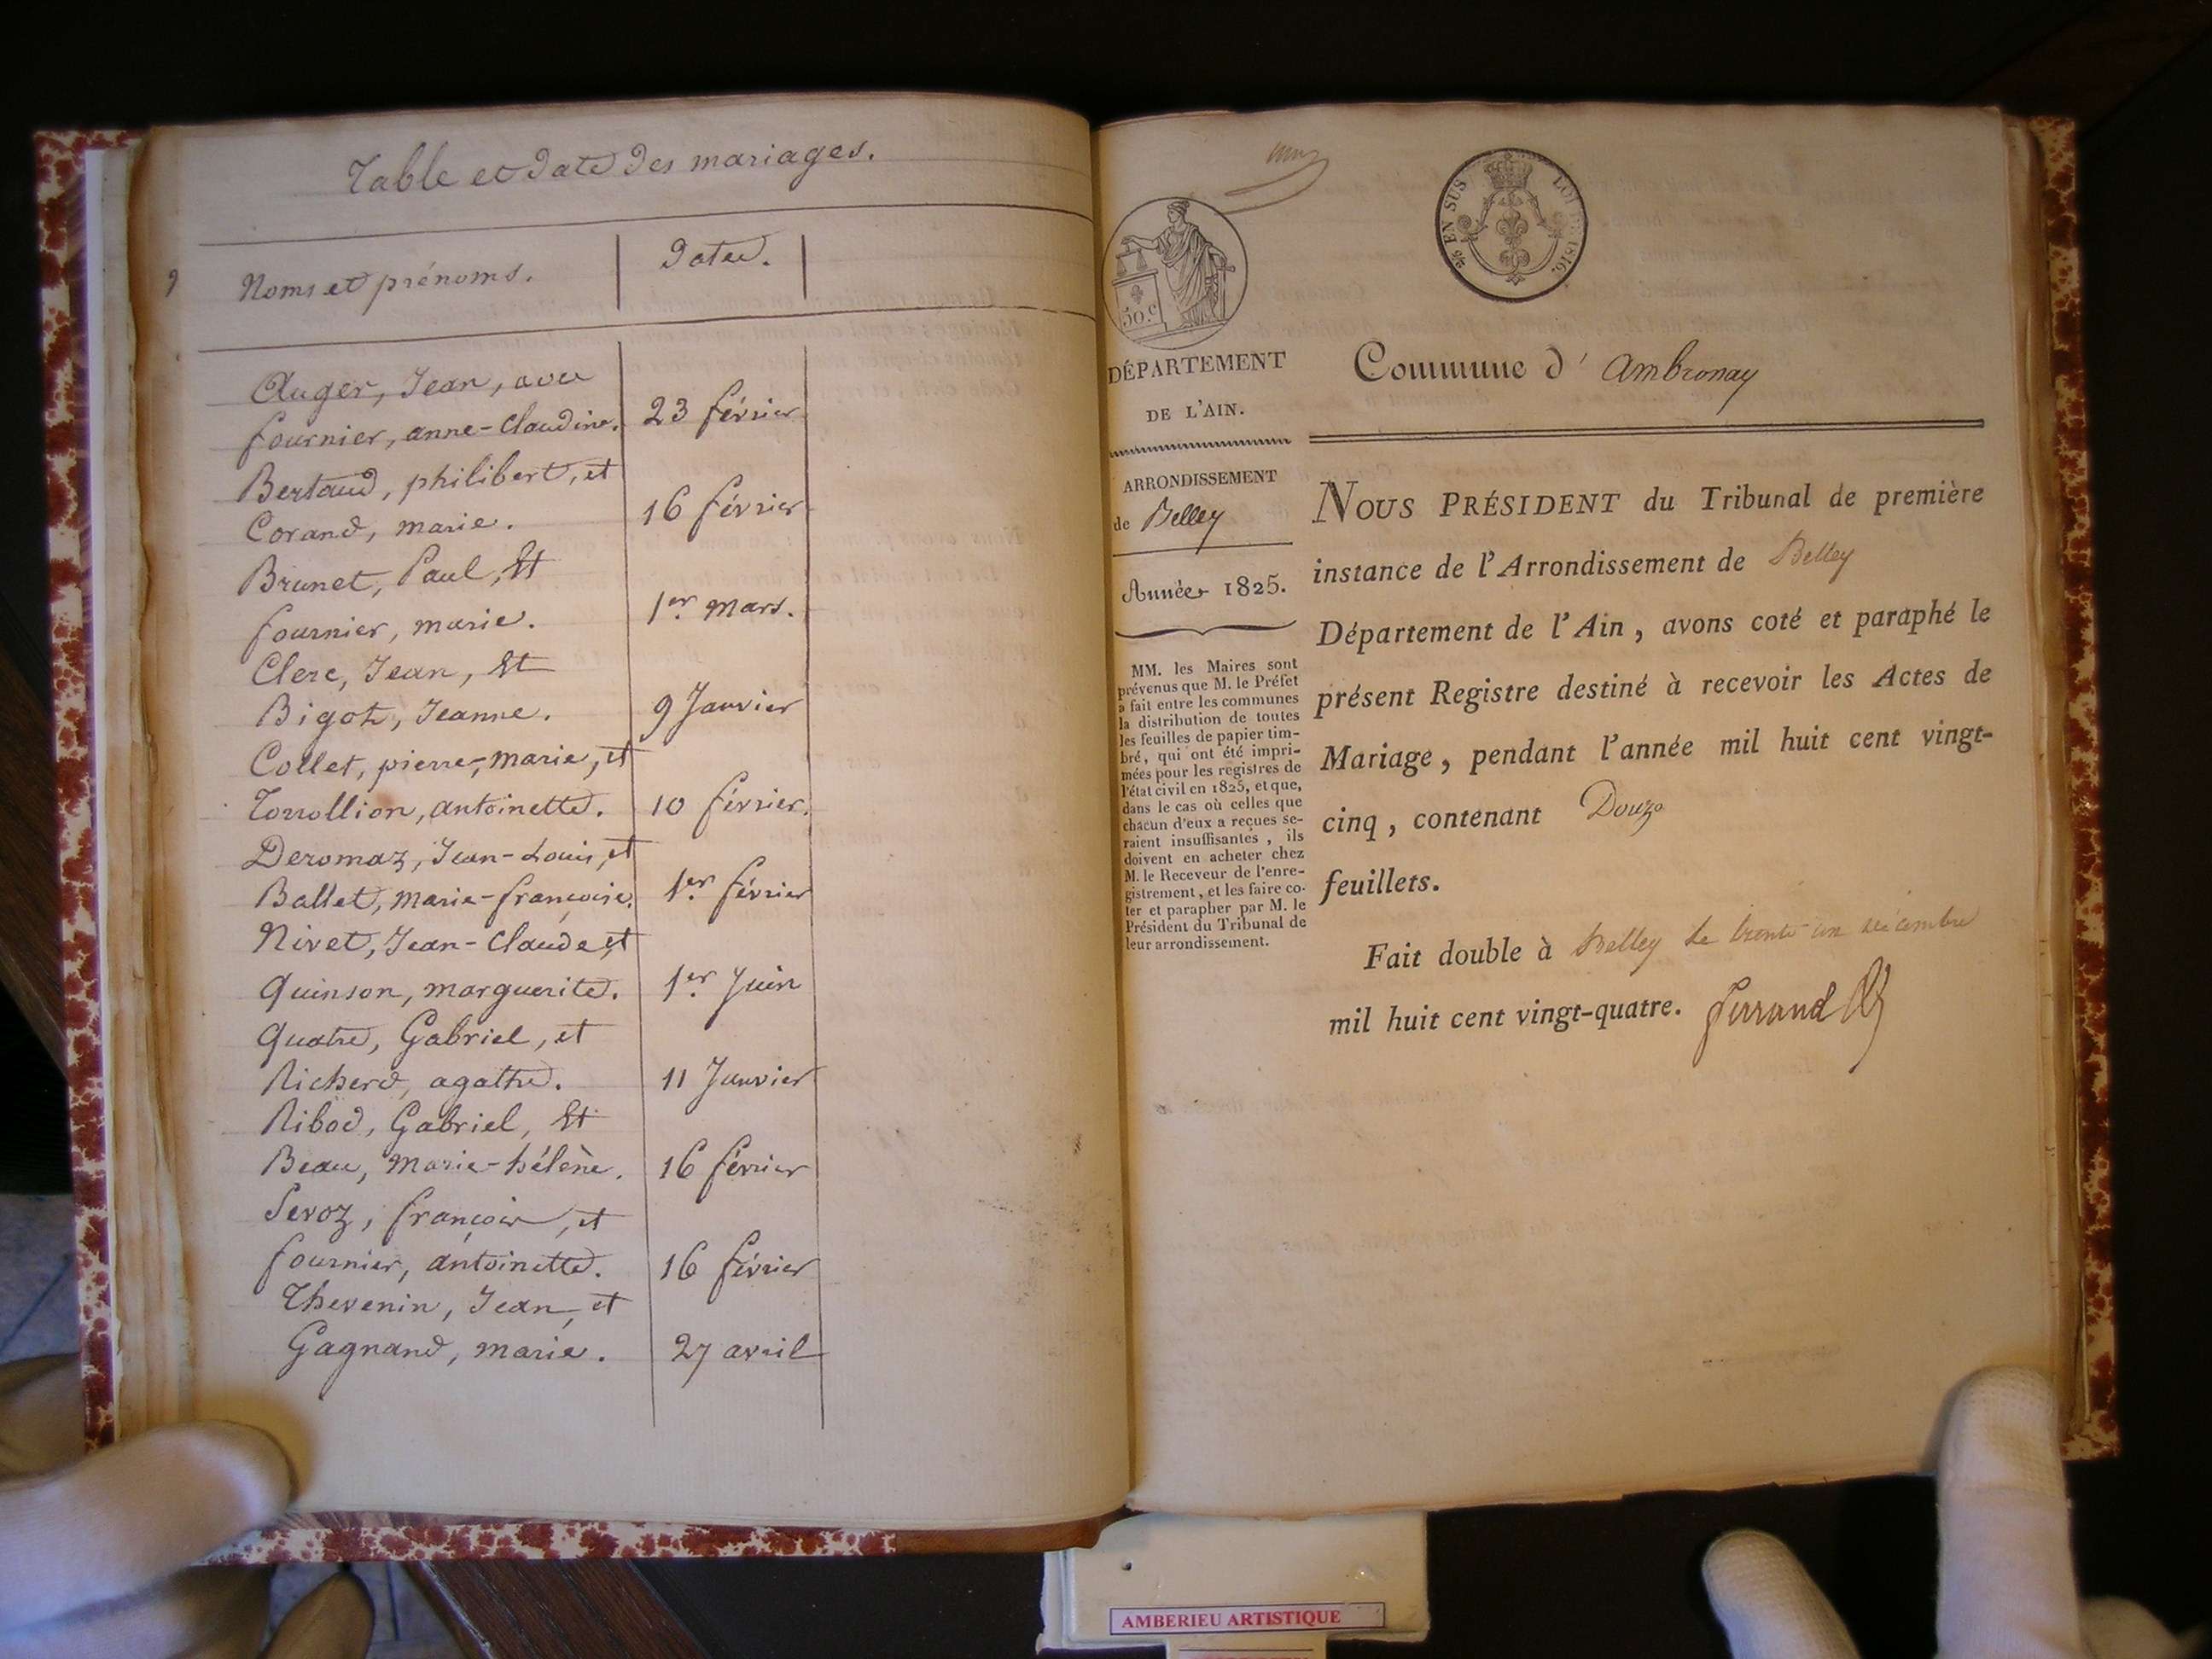 Table et date des mariages.
Noms et prénoms.
Dates.
Auger, Jean, avec
fournier, anne-Claudine.
23 février
Bertaud, philibert, et
Corand, marie.
16 février
Brunet, Paul, Et
fournier, marie.
1er. mars.
Clerc, Jean, Et
Bigot, Jeanne.
9 Janvier
Collet, pierre-marie, et
Torrollion, antoinette.
10 février.
Deromaz, Jean-Louis, et
Ballet, marie-françoise.
1er. février
Nivet, Jean-Claude et
Quinson, marguerite.
1er. Juin
Quatre, Gabriel, et
Richerd, agathe.
11 Janvier
Ribod, Gabriel, Et
Beau, marie-hélène.
16 février
Servoz, françois, et
fournier, antoinette.
16 février
Thevenin, Jean, et
Gagnand, marie.
27 avril
EN SUS
LOI DE 1816.
50.c
DÉPARTEMENT
DE L'AIN.
ARRONDISSEMENT
de Belley
Année 1825.
MM. les Maires sont
prévenus que M. le Préfet
a fait entre les communes
la distribution de toutes
les feuilles de papier tim-
bré, qui ont été impri-
mées pour les registres de
l'état civil en 1825, et que,
dans le cas où celles que
chacun d'eux a reçues se-
raient insuffisantes, ils
doivent en acheter chez
M. le Receveur de l'enre-
gistrement, et les faire co-
ter et parapher par M. le
Président du Tribunal de
leur arrondissement.
Commune d' Ambronay
NOUS PRÉSIDENT du Tribunal de première
instance de l'Arrondissement de Belley
Département de l'Ain, avons coté et paraphé le
présent Registre destiné à recevoir les Actes de
Mariage, pendant l'année mil huit cent vingt-
cinq, contenant Douze
feuillets.
Fait double à Belley le trente un décembre
mil huit cent vingt-quatre. Ferrand
AMBERIEU ARTISTIQUE